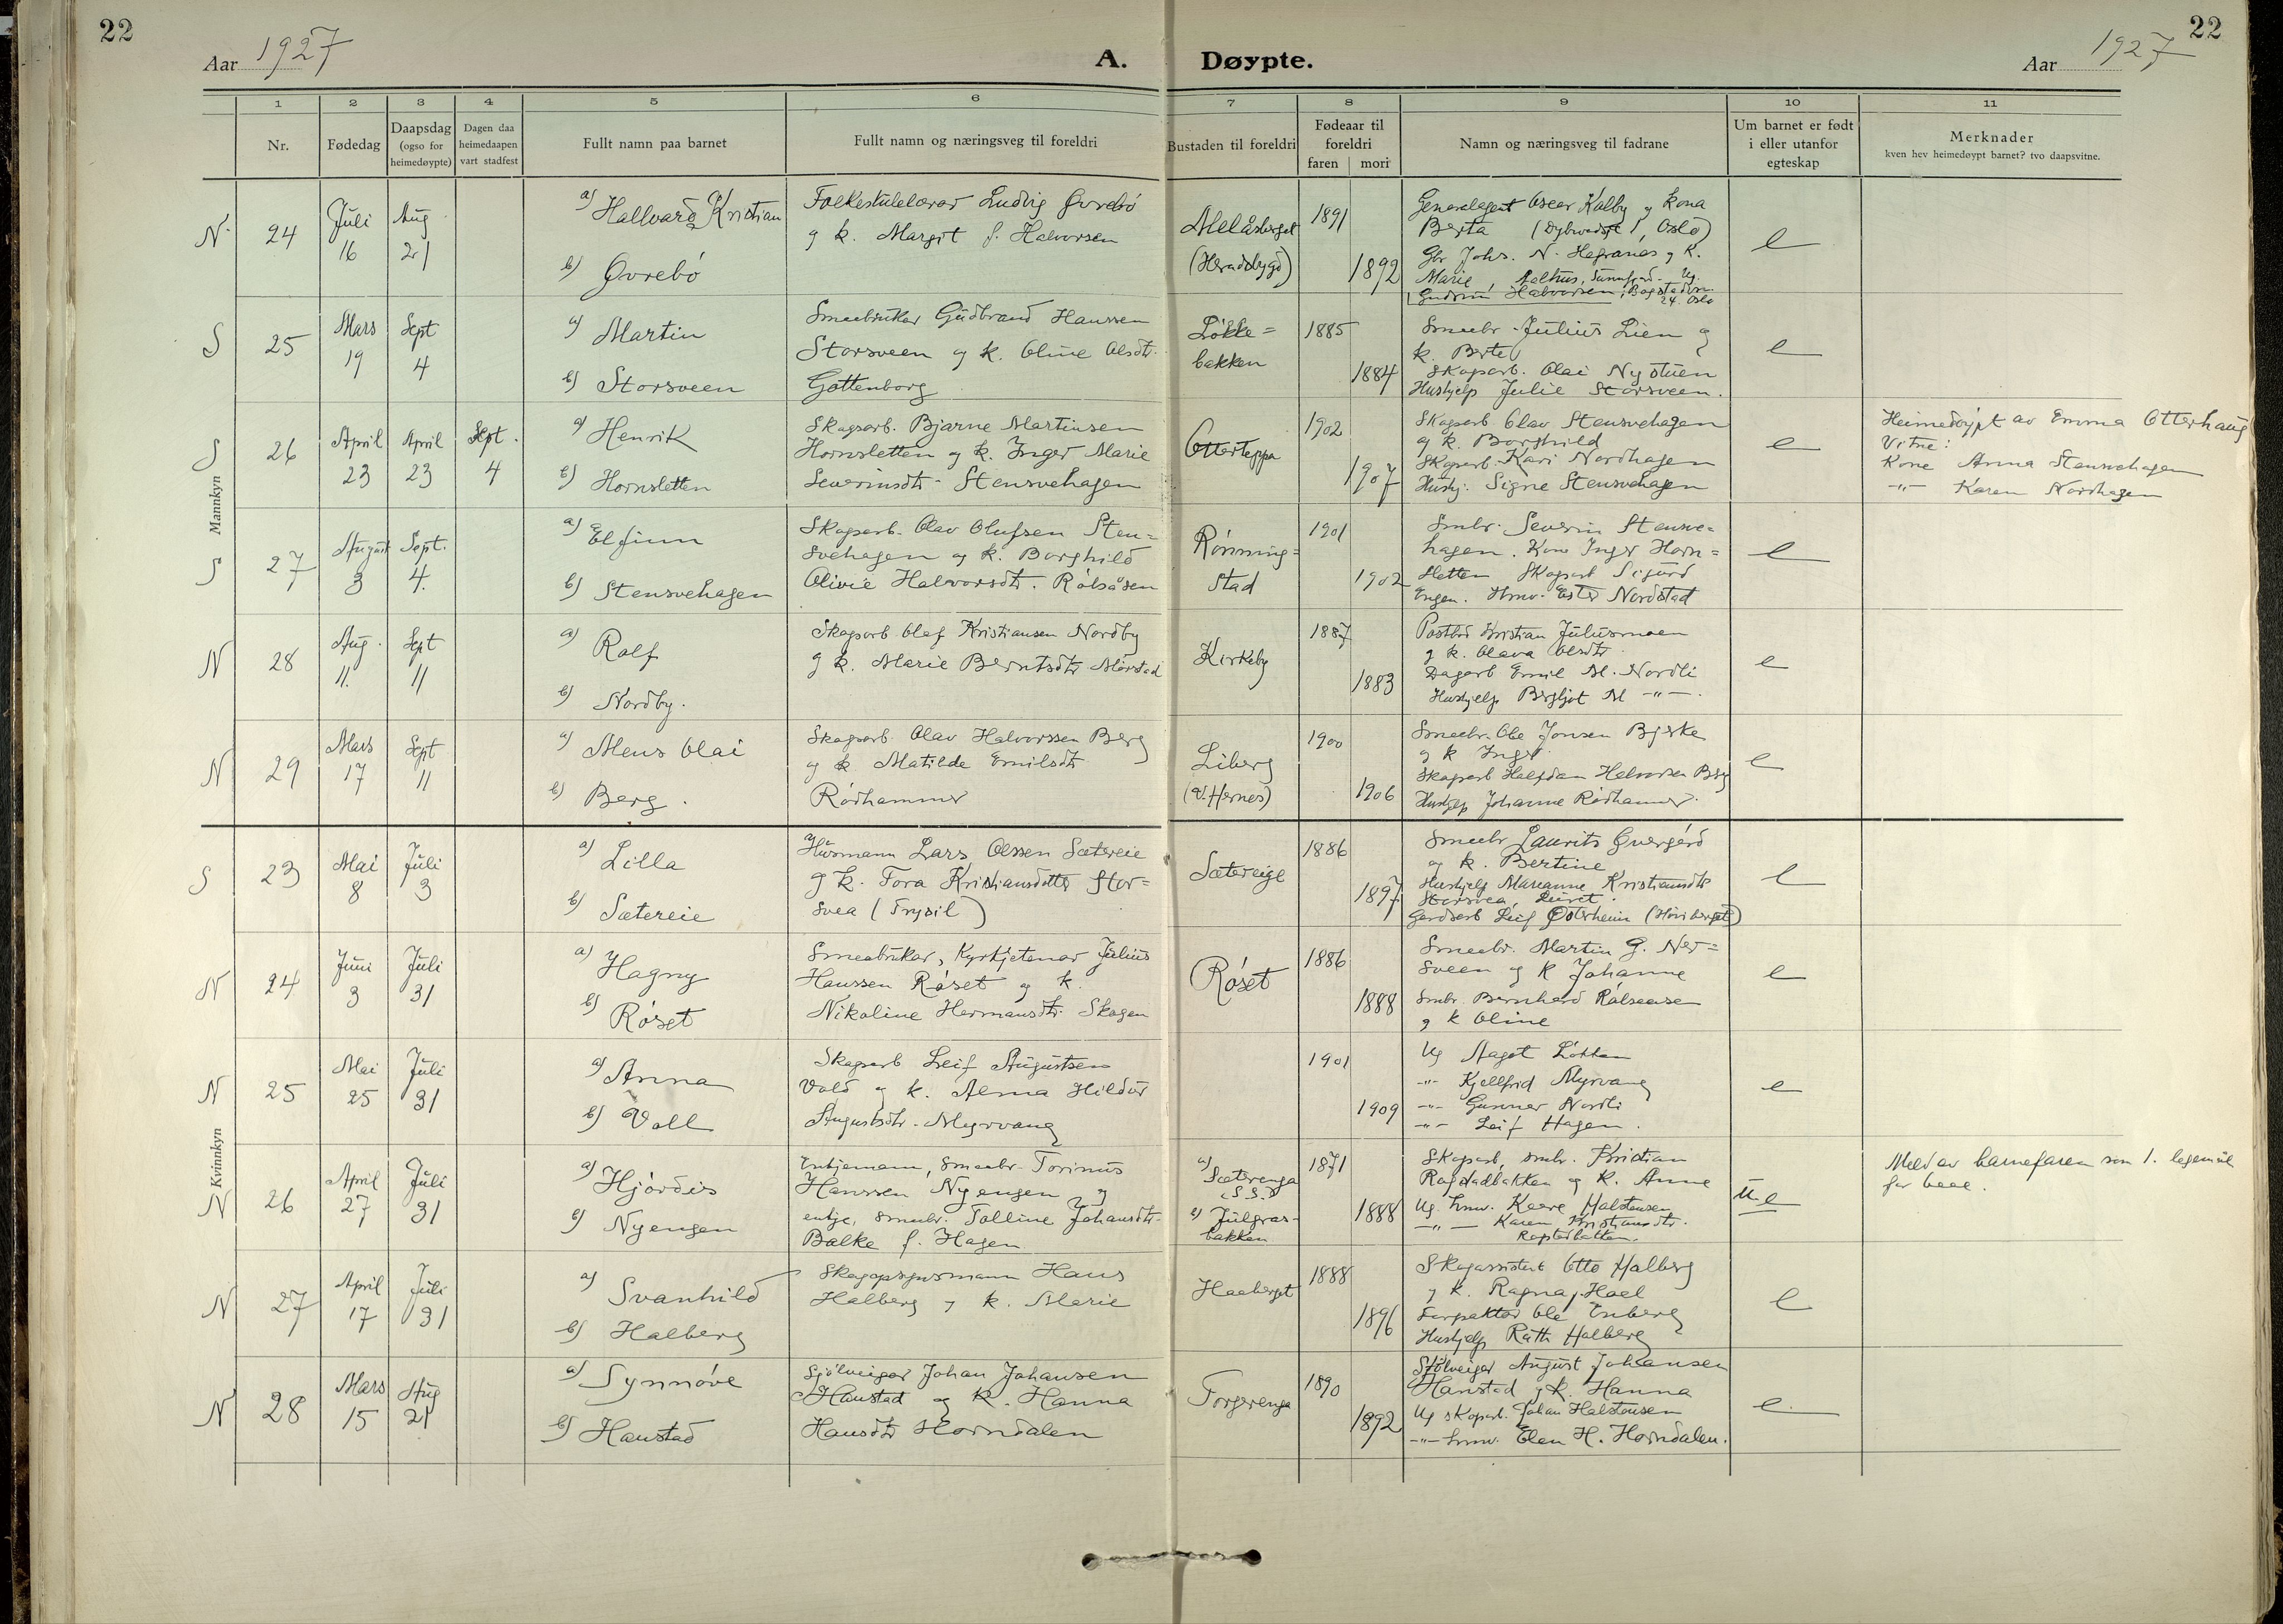 22
22
Aar 1927
A. Døypte.
Aar 1927
1 2 3 4 5 6 7 8 9 10 11
Nr.
Fødedag
Daapsdag (ogso for heimedøypte)
Dagen daa heimedaapen vart stadfest
Fullt namn paa barnet
Fullt namn og næringsveg til foreldri
Bustaden til foreldri
Fødeaar til foreldri
faren mori
Namn og næringsveg til fadrane
Um barnet er født i eller utanfor egteskap
Merknader
kven hev heimedøypt barnet? tvo daapsvitne.
Mannkyn
N 24
Juli 16
Aug 21
a) Hallvard Kristian
b) Øvrebö
Folkeskulelærar Ludvig Øvrebö
og k. Margit f. Halvorsen
(Heradsbygd)
1891
1892
Generalagent Oscar Kalby og kona
Berta Oslo)
Gbr Johs. N. Hegranes og k.
Marie,
Gudrun Halvorsen, 24. Oslo
e
S 25
Mars 19
Sept 4
a) Martin
b) Storsveen
Smaabrukar Gudbrand Hanssen
Storsveen og k. Oline Olsdtr.
Gottenborg
Løkke=
bakken
1885
1884
Smaabr. Julius Lien og
k. Berte
Skogarb. Olai Nystuen
Hushjelp Julie Storsveen.
e
S 26
April 23
April 23
Sept. 4
a) Henrik
b) Hornsletten
Skogsarb. Bjarne Martinsen
Hornsletten og k. Inger Marie
Severinsdtr. Stensvehagen
Otterteppa
1902
1907
Skogsarb Olav Stensvehagen
og k. Borghild
Skogarb. Kari Nordhagen
Hushj. Signe Stensvehagen
e
Heimedöypt av Emma Otterhaug
Vitne:
Kone Anna Stensvehagen
-"- Karen Nordhagen
S 27
August 3
Sept. 4.
a) Elfinn
b) Stensvehagen
Skogsarb. Olav Olufsen Sten=
svehagen og k. Borghild
Olivie Halvorsdtr. Rölsåsen
Rönning=
stad
1901
1902
Smbr. Severin Stensve=
hagen. Kone Inger Horn=
sletten Skogarb Sigurd
Engen. Hmv. Ester Nordstad
e
N 28
Aug. 11.
Sept 11
a) Rolf
b) Nordby.
Skogsarb. Olaf Kristiansen Nordby
og k. Marie Berntsdtr Mörstad
Kirkeby
1887
1883
Postbod Kristian Julusmoen
og k. Olava Olsdtr.
Dagarb Emil M. Nordli
Hushjelp Bergljot M -"-.
e
N 29
Mars 17
Sept 11
a) Mens Olai
b) Berg.
Skogsarb. Olav Halvorssen Berg
og k. Matilde Emilsdtr
Rödhammer
Liberg
(V. Hernes)
1900
1906
Smaabr. Ole Jonsen Bjerke
og k Inger
Skogarb Halfdan Halvorsen Berg
Hushjelp Johanne Rödhammer.
e
Kvinnkyn
S 23
Mai 8
Juli 3
a) Lilla
b) Sætereie
Husmann Lars Olssen Sætereie
og k. Tora Kristiansdotter Stor=
svea (Trysil)
Sætereige
1886
1897
Smaabr Laurits Qvergård
og k. Bertine
Hushjelp Marianne Kristiansdtr
Storsvea,
Gardsarb Leif Österheim
e
N 24
Juni 3
Juli 31
a) Hagny
b) Röset
Smaabrukar, Kyrkjetenar Julius
Hanssen Röset og k.
Nikoline Hermansdtr. Skogen
Röset
1886
1888
Smaabr. Martin G. Ner=
sveen og k Johanne
Smbr. Bernhard Rölsaasen
og k Oline
e
N 25
Mai 25
Juli 31
a) Anna
b) Voll
Skogsarb Leif Augustsen
Vold og k. Alma Hildur
Augustsdtr. Myrvang
1901
1909
Ug Aagot Lökken
-"- Kjellfrid Myrvang
-"- Gunnar Nordli
-"- Leif Hagen.
e
N 26
April 27
Juli 31
a) Hjördis
b) Nyengen
Enkjemann, Smaabr. Torinus
Hanssen Nyengen og
enkje, smaabr. Tolline Johansdtr.
Balke f. Hagen
a) Sæterenga
b) Julgras-
bakken
1871
1888
Skogarb, smbr. Kristian
Rogstadbakken og k. Anne
Ug. hmv. Kaare Halstensen
-"- Karen Kristiansdtr.
Rogstadbakken.
U.e
Meld av barnefaren som 1. legemaal
for baae.
N 27
April 17
Juli 31
a) Svanhild
b) Halberg
Skogopsynsmann Hans
Halberg og k. Marie
Haaberget
1888
1896
Skogassistent Otto Halberg
og k. Ragna Hoel
Forpaktar Ole Enberg
Hushjelp Ruth Halberg
e
N 28
Mars 15
Aug 21
a) Synnöve
b) Hanstad
Sjölveigar Johan Johansen
Hanstad og k. Hanna
Hansdtr Horndalen
Torgerenga
1890
1892
Sjölveigar August Johansen
Hanstad og k. Hanna
Ug skogarb. Johan Halstensen
-"- hmv. Elen H. Horndalen.
e